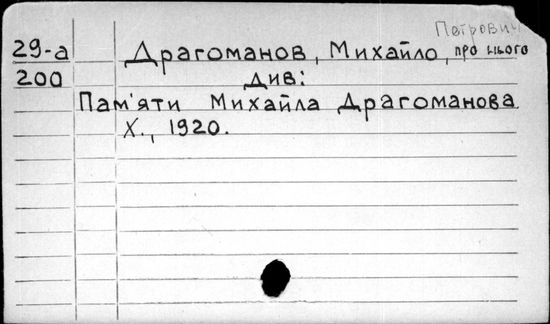 Петрович
29-а Драгоманов, Михайло, про нього
200 див:
Пам'яти Михайла Драгоманова
Х., 1920.